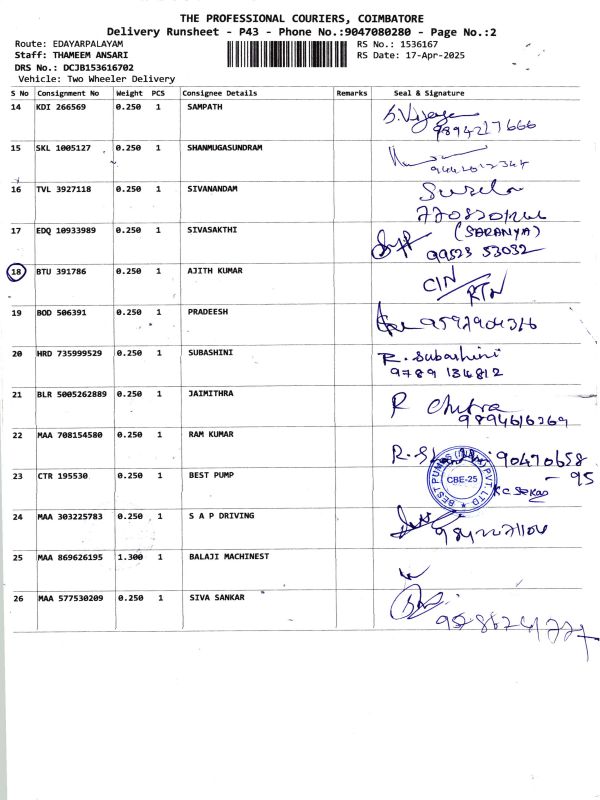 THE PROFESSIONAL COURIERS, COIMBATORE
Delivery Runsheet - P43 - Phone No.:9047080280 - Page No.:2
Route: EDAYARPALAYAM
RS No.: 1536167
Staff: THAMEEM ANSARI
RS Date: 17-Apr-2025
DRS No.: DCJB153616702
Vehicle: Two Wheeler Delivery
S No Consignment No Weight PCS Consignee Details Remarks Seal & Signature
14 KDI 266569 0.250 1 SAMPATH
9894217666
15 SKL 1005127 0.250 1 SHANMUGASUNDRAM
16 TVL 3927118 0.250 1 SIVANANDAM
17 EDQ 10933989 0.250 1 SIVASAKTHI (SARANYA)
99523 53032
18 BTU 391786 0.250 1 AJITH KUMAR
19 BOD 506391 0.250 1 PRADEESH
20 HRD 735999529 0.250 1 SUBASHINI R. Subashini
9789 134812
21 BLR 5005262889 0.250 1 JAIMITHRA R Chitra
9894616269
22 MAA 708154580 0.250 1 RAM KUMAR 90470658
- 95
23 CTR 195530 0.250 1 BEST PUMP BEST PUMPS (INDIA) PVT. LTD
CBE-25
24 MAA 303225783 0.250 1 S A P DRIVING
25 MAA 869626195 1.300 1 BALAJI MACHINEST
26 MAA 577530209 0.250 1 SIVA SANKAR